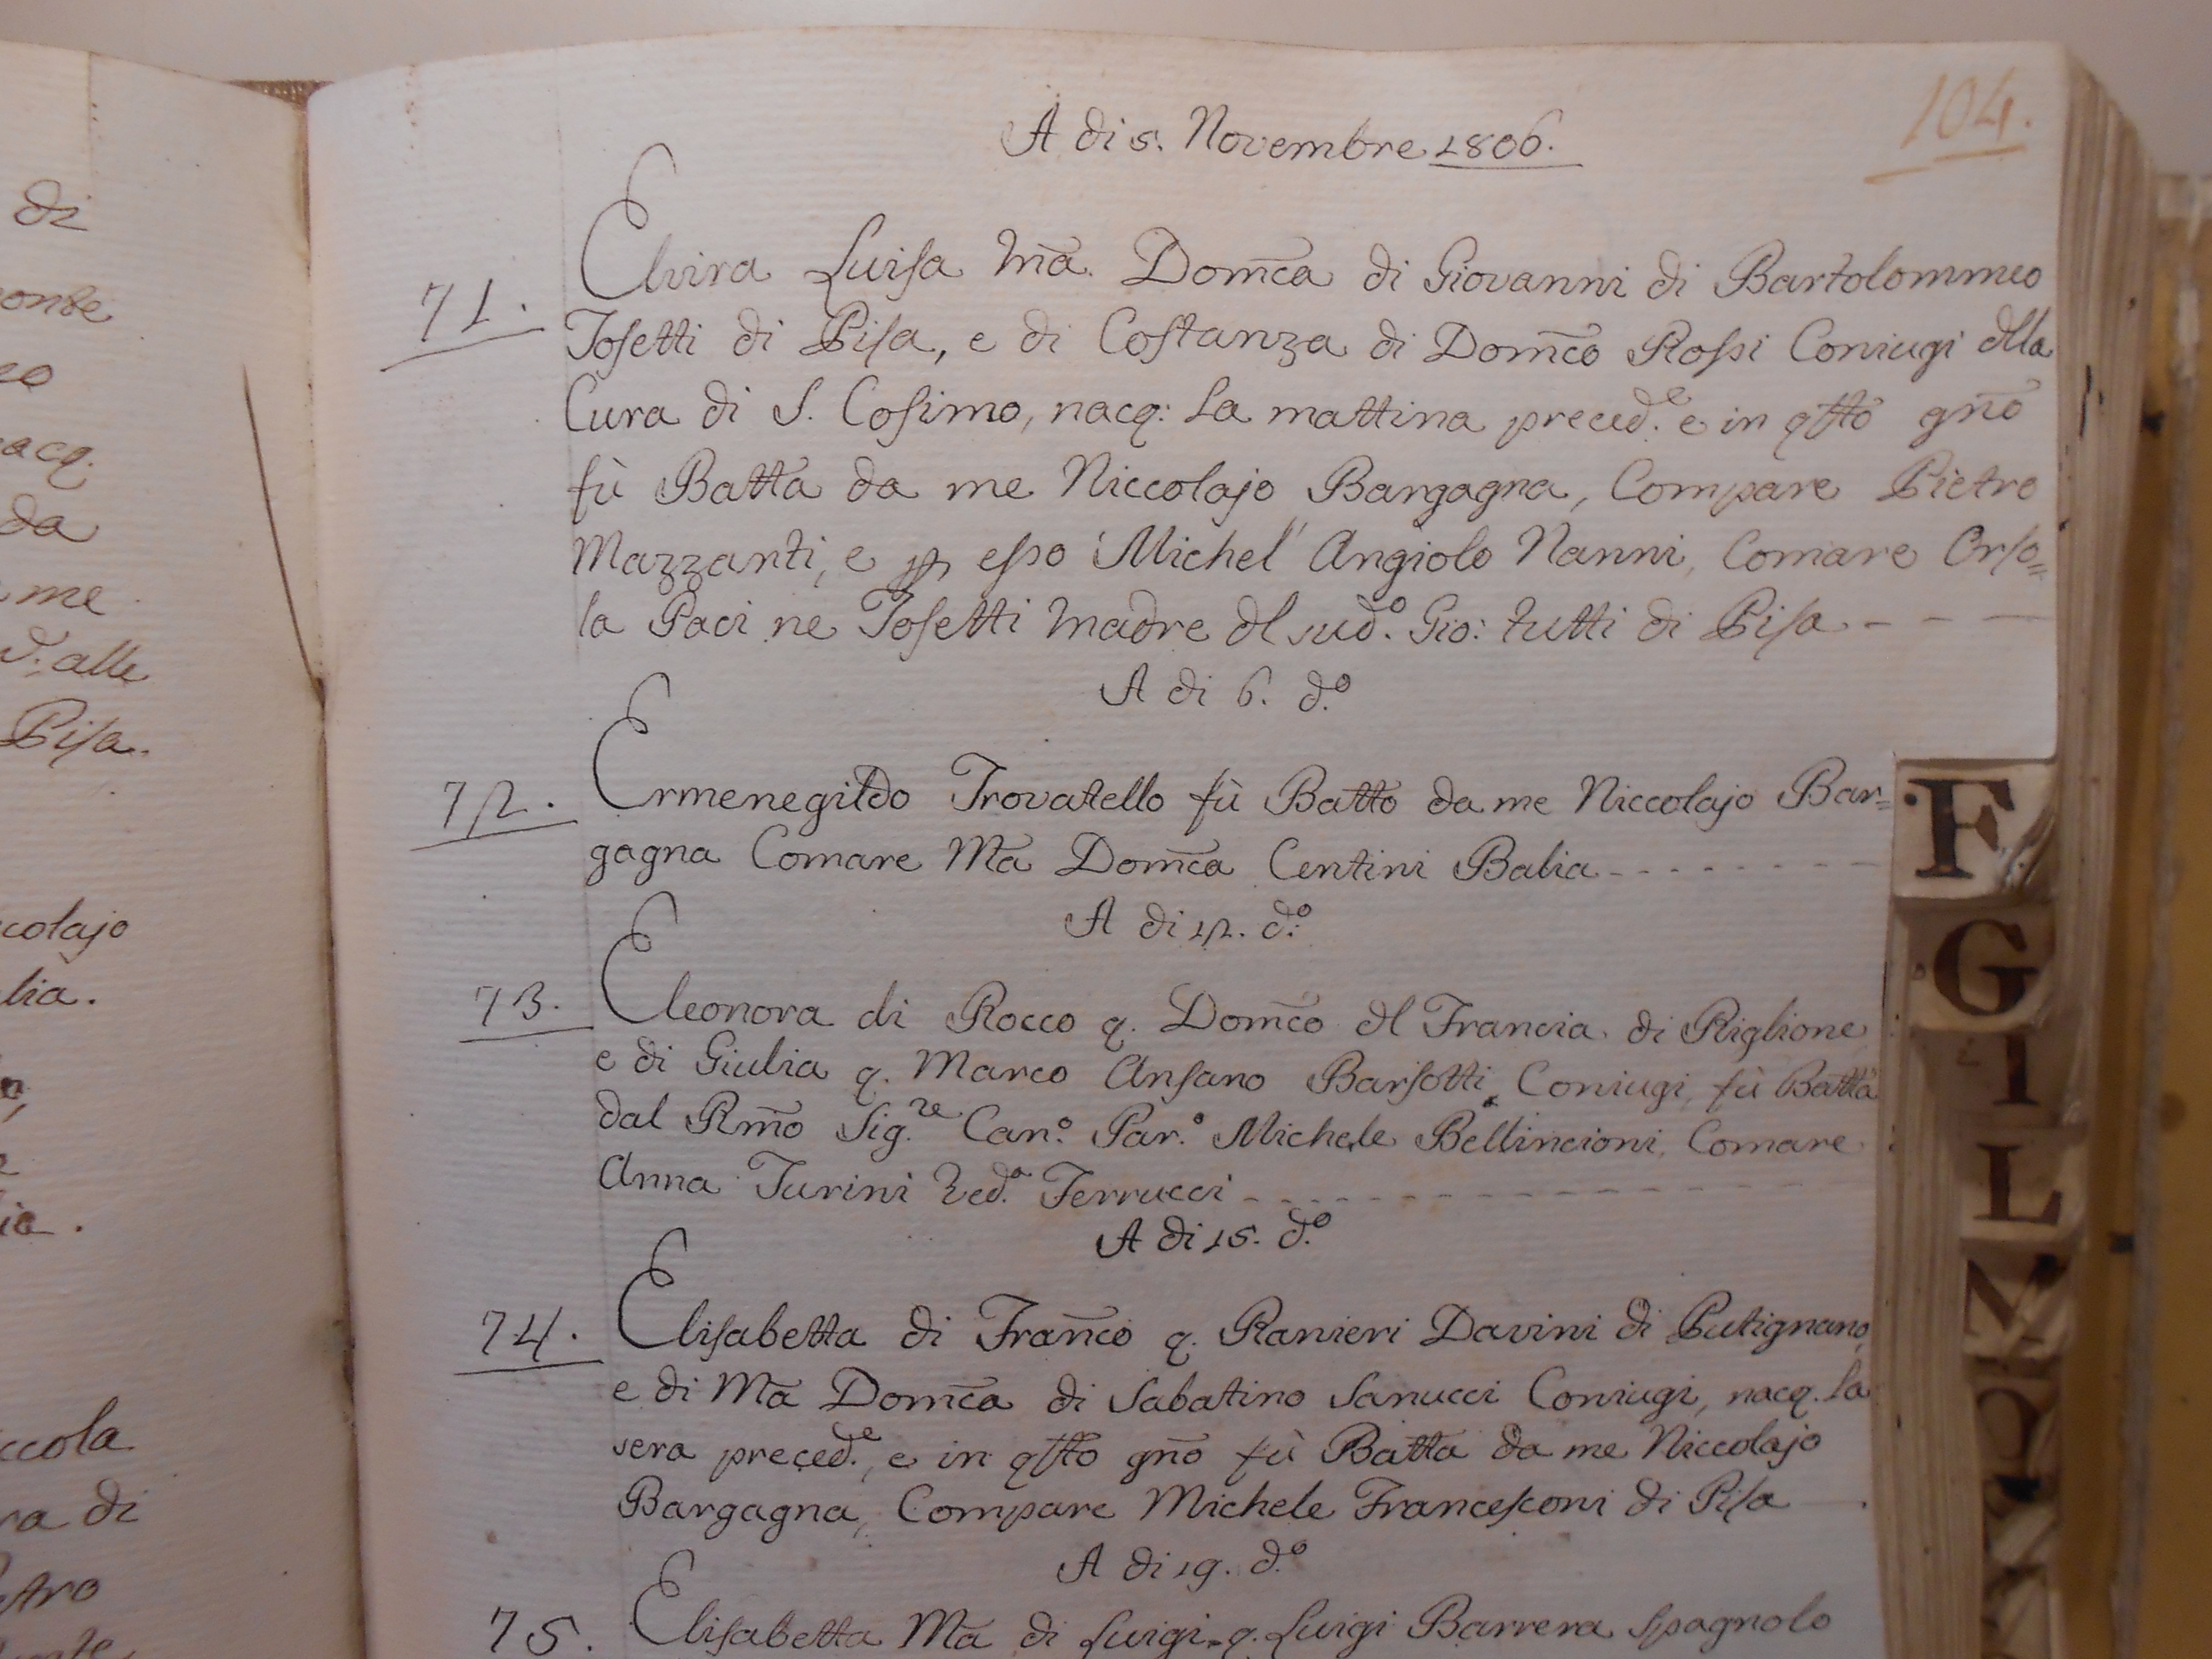 di
onte
eo
acq.
da
me
d: alle
Pisa.
ccolajo
lia.
ia.
ccola
ra di
stro
104.
A di 5. Novembre 1806.
71. Elvira Luisa Mā. Dom̄ca di Giovanni di Bartolommeo
Tosetti di Pisa, e di Costanza di Dom̄co Rossi Coniugi dlla
Cura di S. Cosimo, nacq: la mattina preced.e e in qsto gn̄o
fù Batta da me Niccolajo Bargagna, Compare Pietro
Mazzanti, e p esso Michel'Angiolo Nanni, Comare Orso=
la Paci ne Tosetti Madre dl sud.o Gio: tutti di Pisa - - -
A di 6. d.o
72. Ermenegildo Trovatello fù Batto da me Niccolajo Bar=
gagna Comare Mā Dom̄ca Centini Balia - - - - - - -
A di 12. d.o
73. Eleonora di Rocco q. Dom̄co dl Francia di Riglione
e di Giulia q. Marco Ansano Barsotti Coniugi, fù Batta
dal Rm̄o Sig.re Can.o Par.o Michele Bellincioni, Comare
Anna Turini Ved.a Ferrucci - - - - - - - - - - - - - - -
A di 15. d.o
74. Elisabetta di Fran̄co q. Ranieri Davini di Putignano,
e di Mā Dom̄ca di Sabatino Sanucci Coniugi, nacq. la
sera preced.e, e in qsto gn̄o fù Batta da me Niccolajo
Bargagna, Compare Michele Francesconi di Pisa
A di 19. d.o
75. Elisabetta Mā di Luigi q. Luigi Barrera Spagnolo
F
G
I
L
M